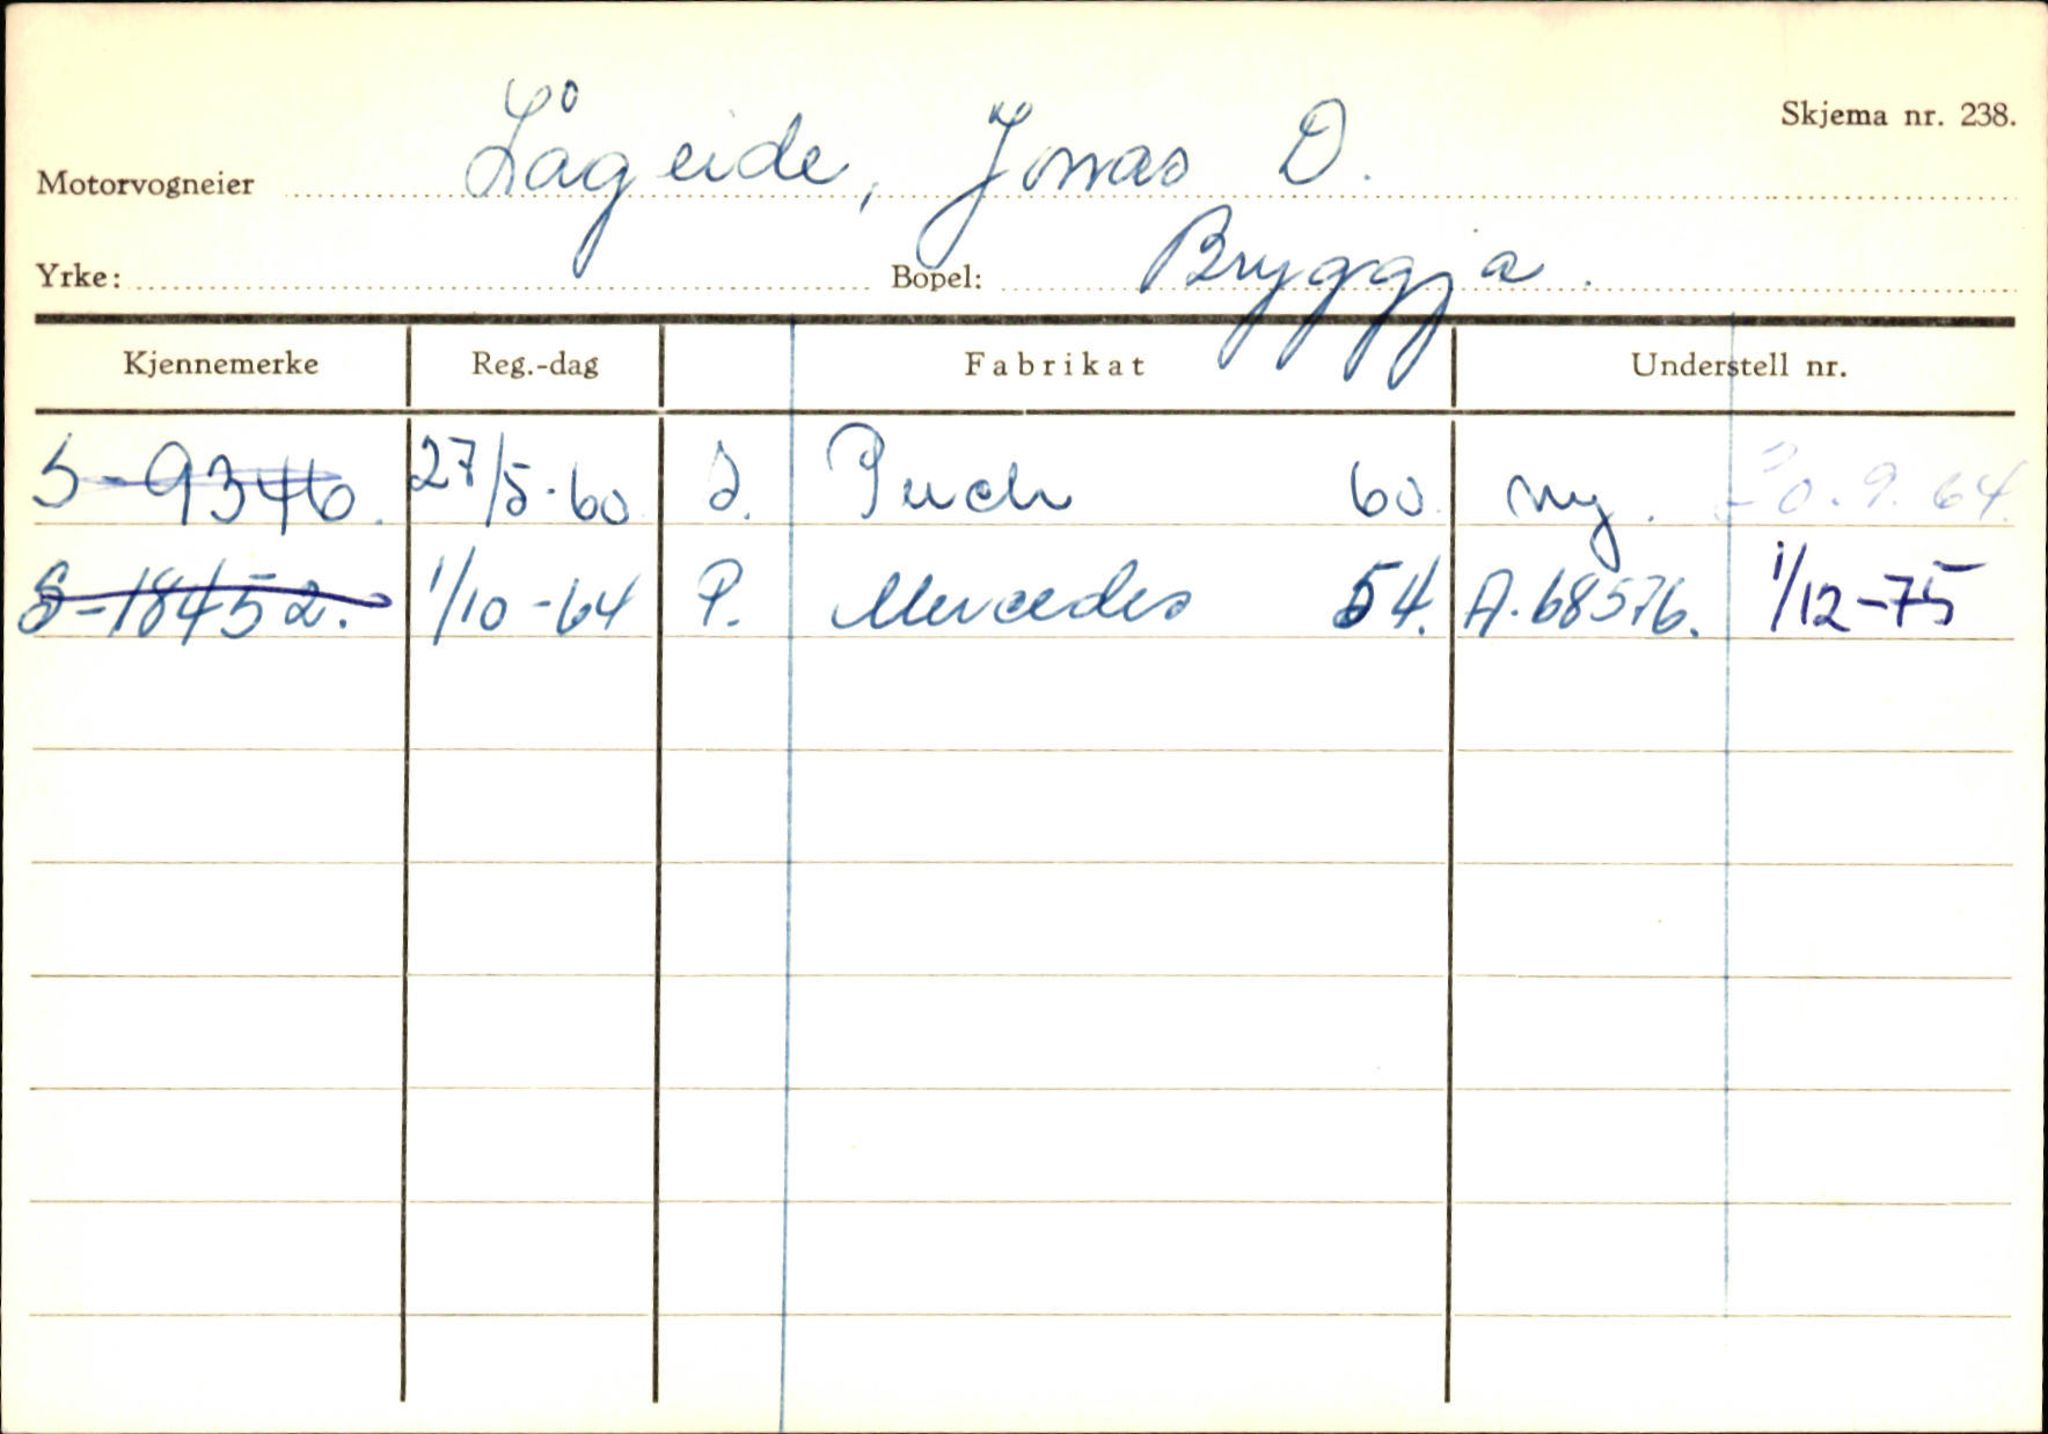 Skjema nr. 238.
Motorvogneier Lågeide, Jonas D.
Yrke: Bopel: Bryggja.
Kjennemerke Reg.-dag Fabrikat Understell nr.
S-9346. 27/5-60 Puch 60 ny. 30.9.64.
S-18452. 1/10-64 P. Mercedes 54. A.68576. 1/12-75